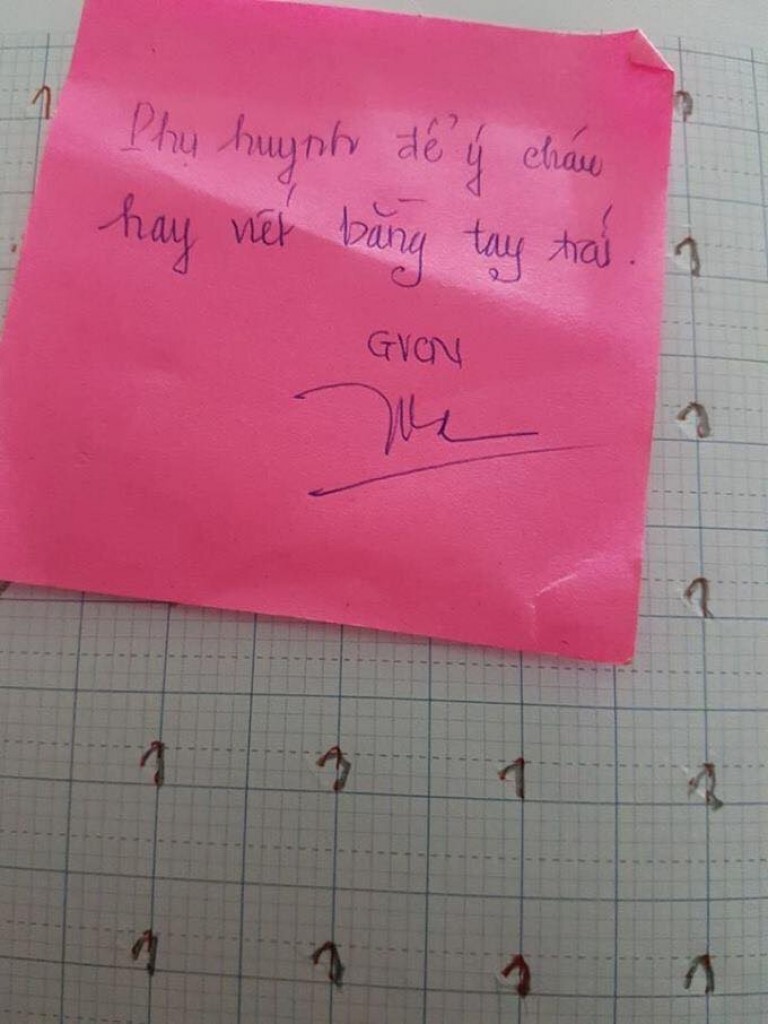 Phụ huynh để ý cháu
hay viết bằng tay trái.
GVCN
1 1
1
1
1
1 1 1 1
1 1 1 1